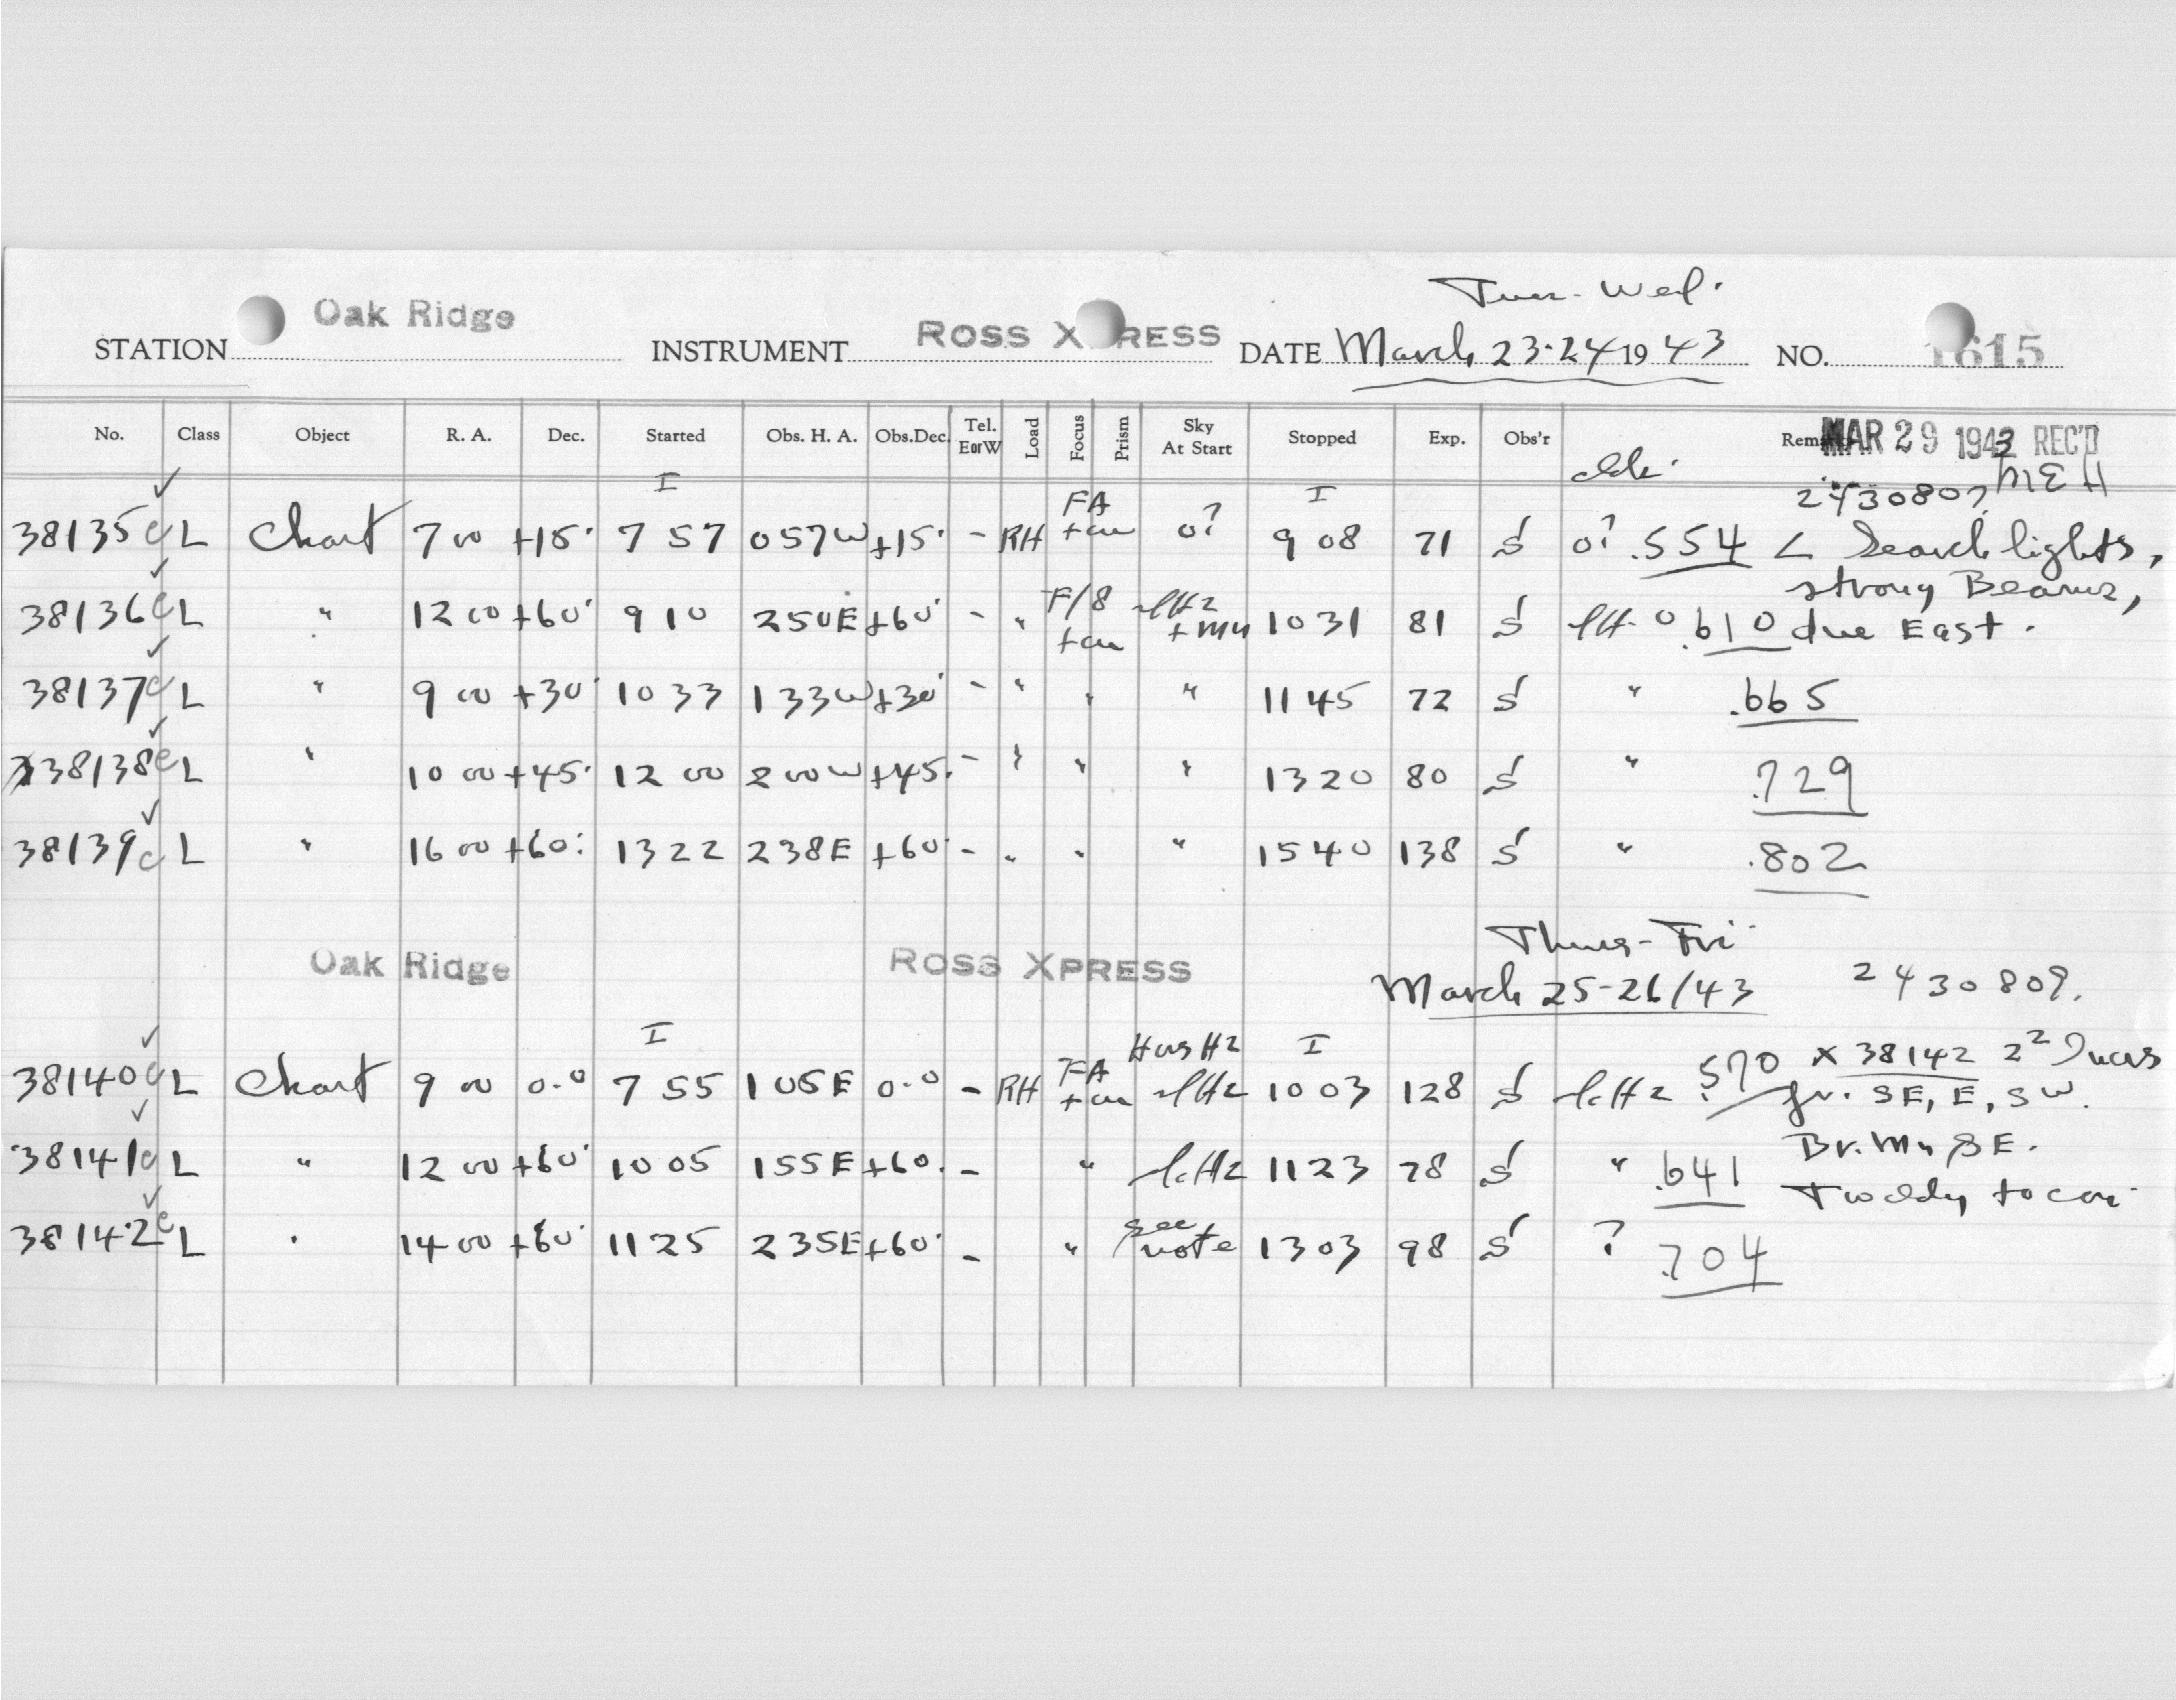 Tues- Wed.
STATION Oak Ridge INSTRUMENT ROSS X RESS DATE March 23-24 1943 NO. 1615
No. Class Object R. A. Dec. Started Obs. H. A. Obs.Dec. Tel. E or W Load Focus Prism Sky At Start Stopped Exp. Obs'r Remarks MAR 29 1943 REC'D
MEH
I I 2430807.
38135 c L Chart 7 00 +15° 7 57 057W +15° - RH FA o? 9 08 71 S o? .554 < Search lights,
strong Beams,
38136 c L " 12 00 +60° 9 10 250E +60° - " F/8 Hz 10 31 81 S .610 due East.
38137 c L " 9 00 +30° 10 33 133W +30° - " " " 11 45 72 S " .665
38138 c L " 10 00 +45° 12 00 200W +45° - " " " 13 20 80 S " .729
38139 c L " 16 00 +60° 13 22 238E +60° - " " " 15 40 138 S " .802
Thurs-Fri
Oak Ridge ROSS XPRESS March 25-26/43 2430809.
I Hz I x 38142
38140 c L Chart 9 00 0.0 7 55 105E 0.0 - RH FA Hz 10 03 128 S Hz .570 SE, E, SW.
Br. Mn SE.
38141 c L " 12 00 +60° 10 05 155E +60° - " Hz 11 23 78 S " .641
38142 c L " 14 00 +60° 11 25 235E +60° - " see note 13 03 98 S ? .704